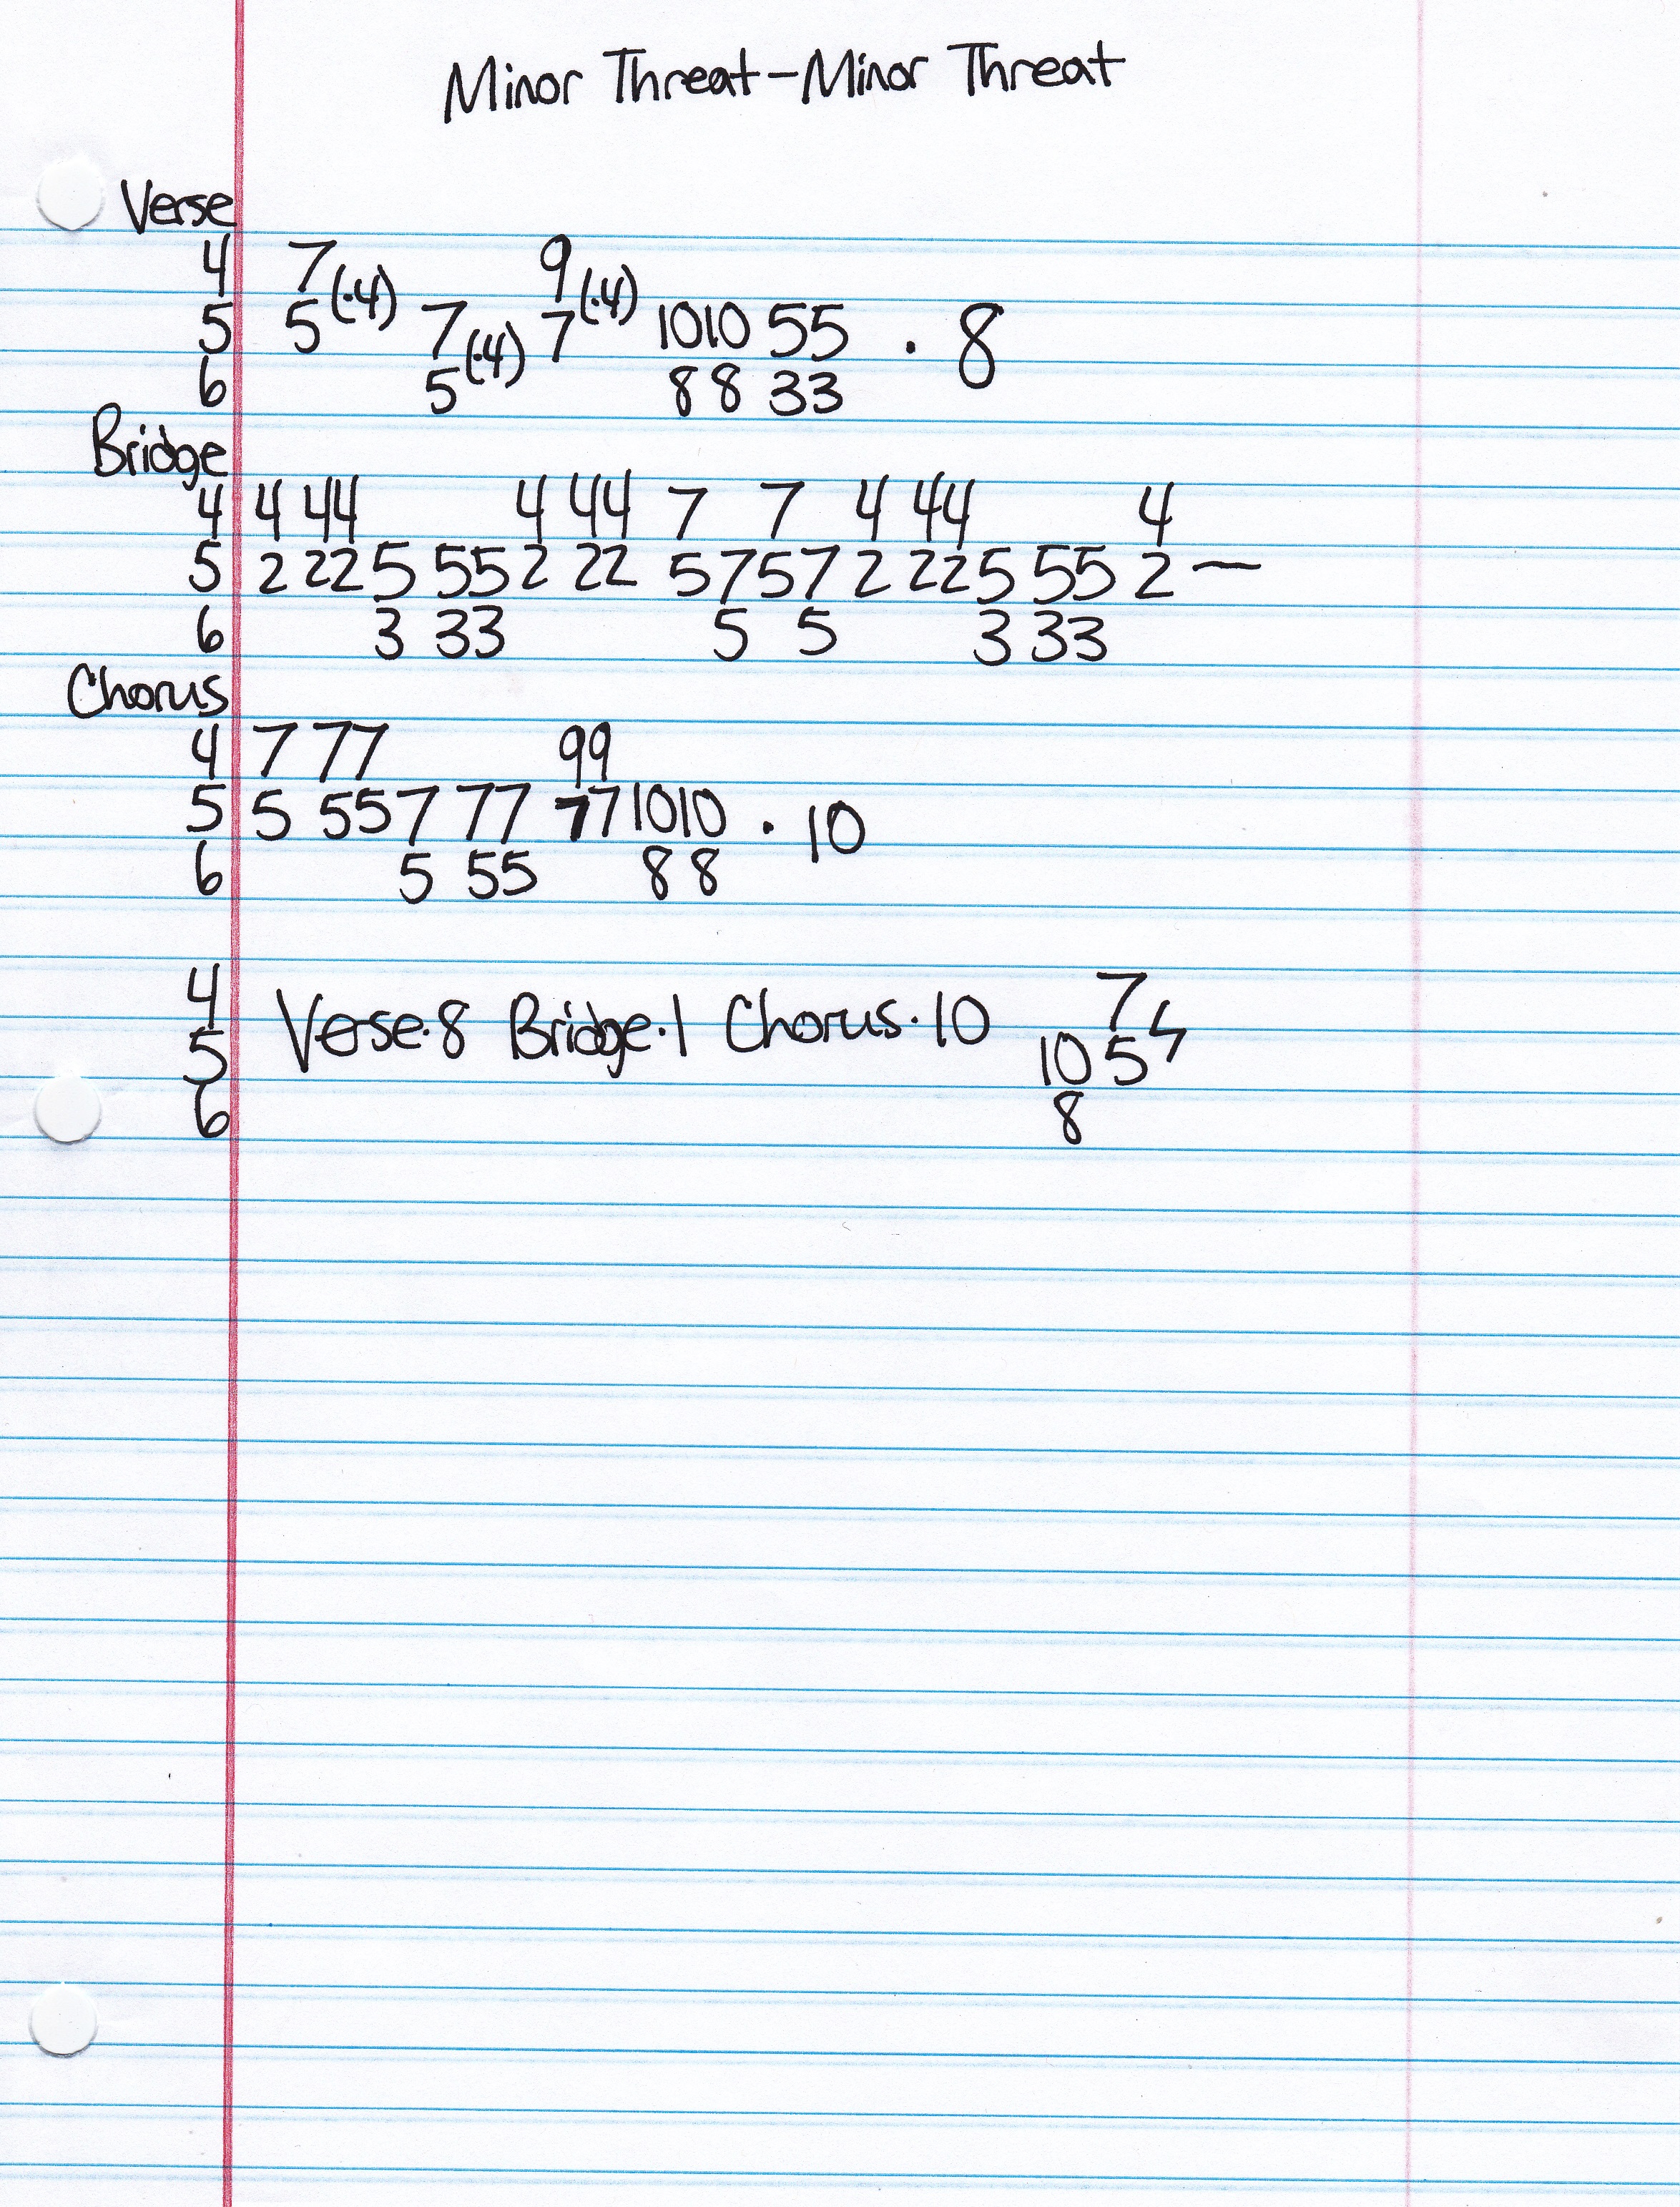 Minor Threat-Minor Threat
Verse
4 7 (·4) 9 (·4)
5 5 7 (·4) 7 1010 55 · 8
6 5 88 33
Bridge
4 4 44 4 44 7 7 4 44 4
5 2 22 5 55 2 22 5 7 5 7 2 22 5 55 2 —
6 3 33 5 5 3 33
Chorus
4 7 77 99
5 5 55 7 77 77 1010 · 10
6 5 55 88
4 7
5 Verse·8 Bridge·1 Chorus·10 10 5
6 8